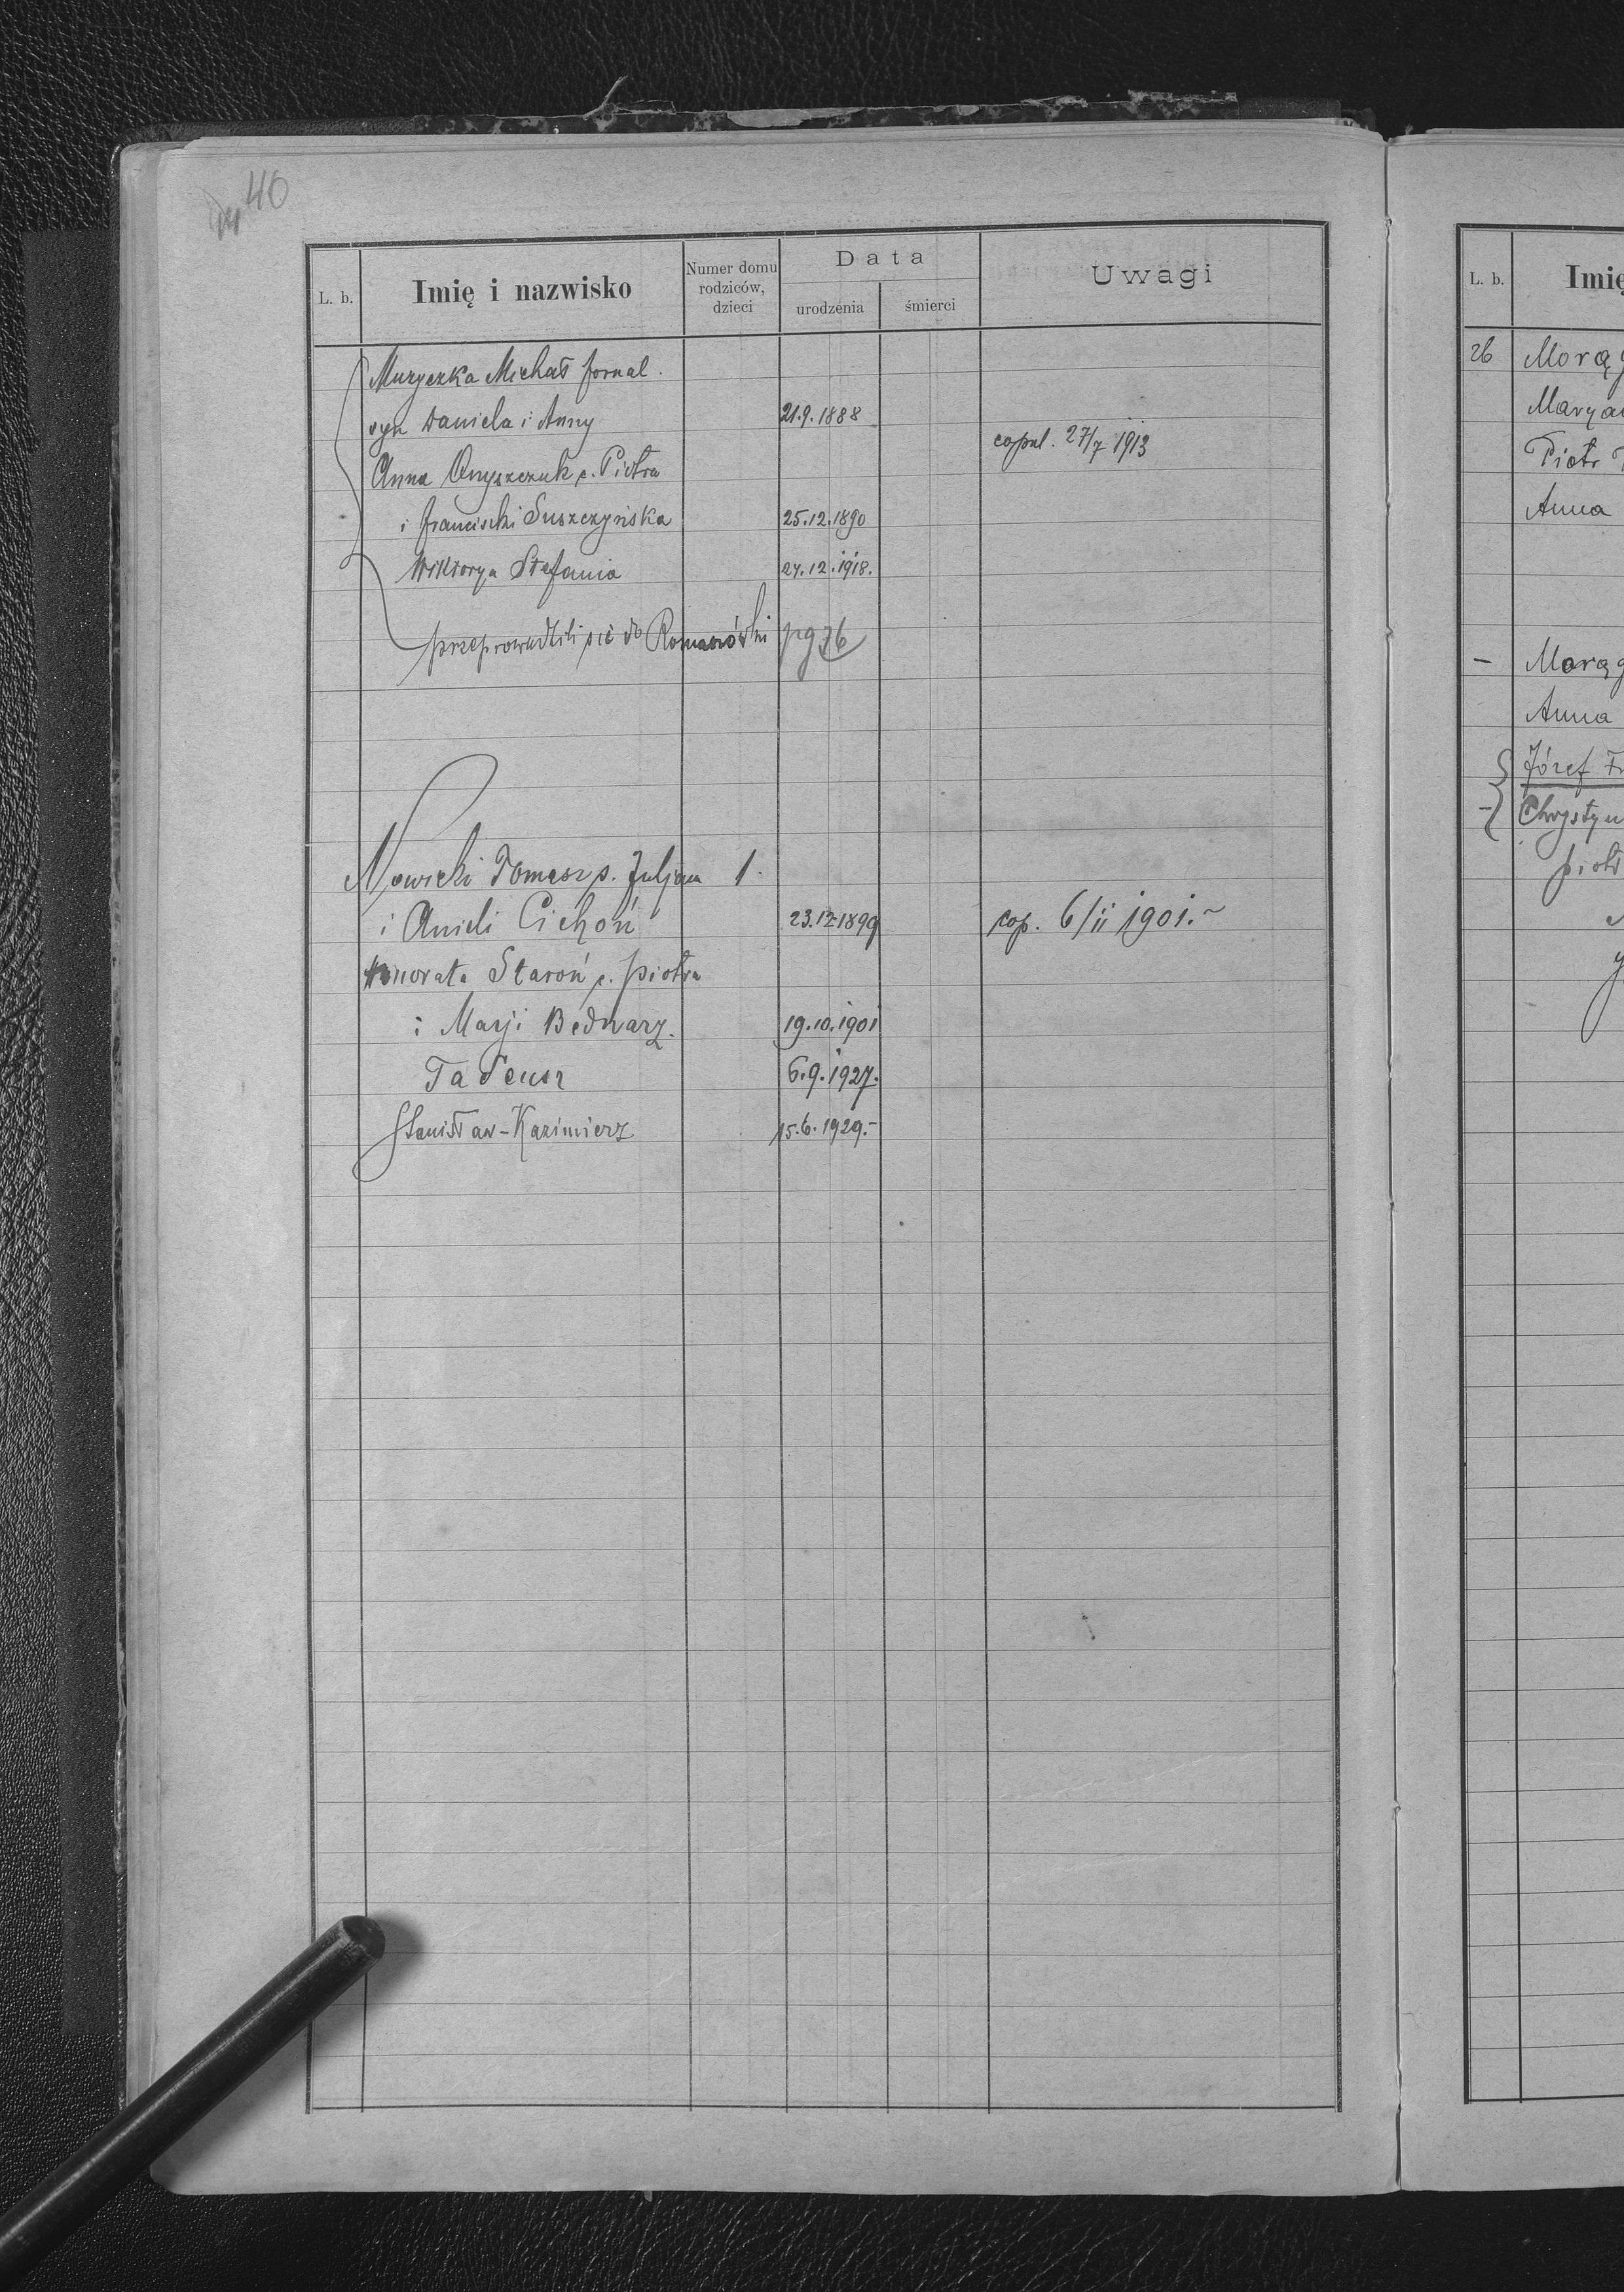 40
L. b.
Imię i nazwisko
Numer domu rodziców, dzieci
Data
urodzenia
śmierci
Uwagi
Muzyczka Michał fornal.
syn Daniela i Anny 21.9.1888
copul. 27/7 1913
Anna Onyszczuk c. Piotra
i Franciszki Suszczyńska 25.12.1890
Wiktorya Stefania 24.12.1918.
przeprowadzili się do Romasówki pg 76
Nowicki Tomasz s. Juljana 1.
i Anieli Cichoń 23.12.1899 cop. 6/11 1901.~
Honorata Staroń c. Piotra
i Marji Bednarz. 19.10.1901
Tadeusz 6.9.1927.
Stanisław-Kazimierz 15.6.1929.-
L. b.
Imię
26 Morąg
Marya
Piotr
Anna
– Morąg
Anna
Józef Fr
– Chrystyn
piotr